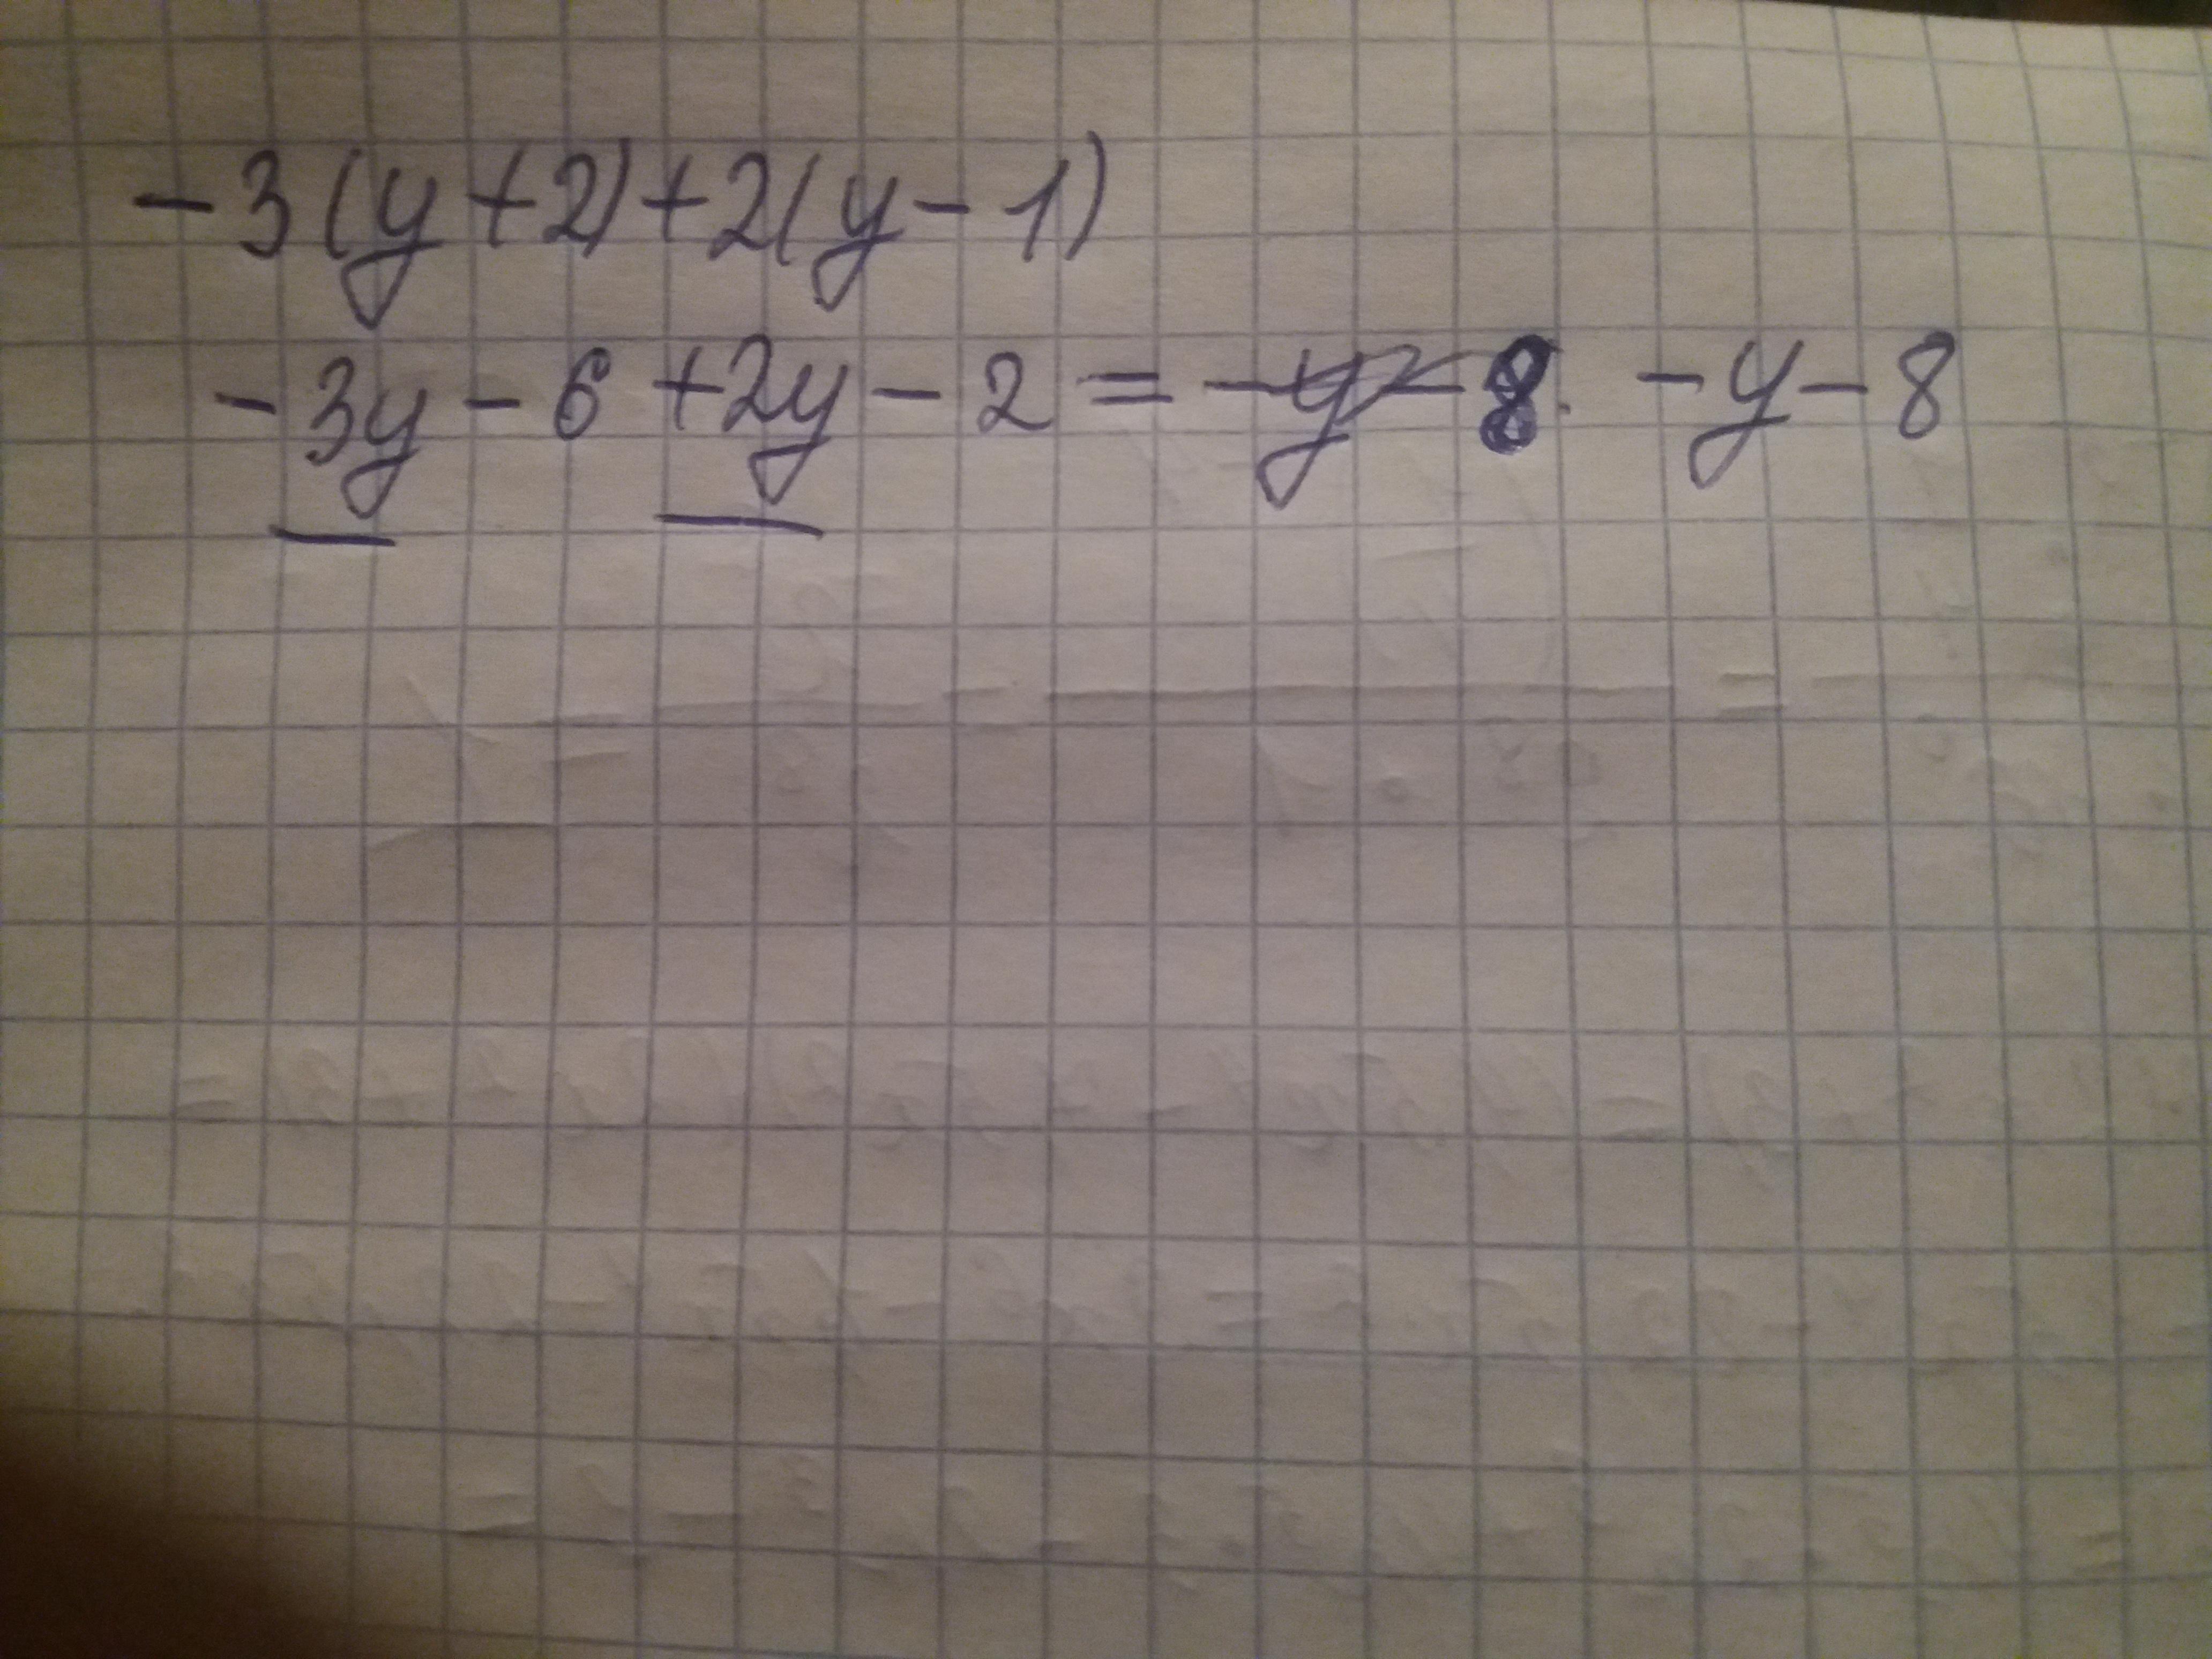 -3(y+2)+2(y-1)
-3y-6+2y-2=-y-8. -y-8